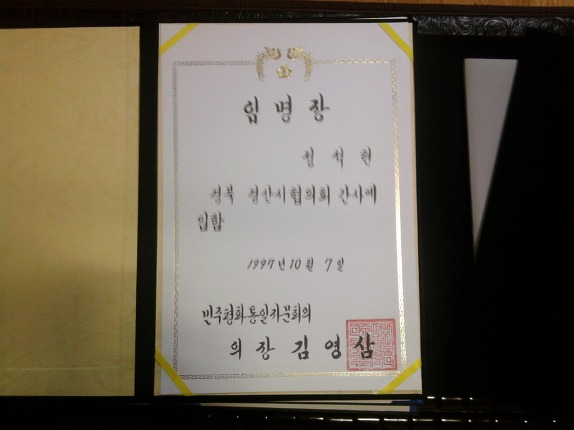 임명장
정석현
경북 경산시협의회 간사에
임함
1997년 10월 7일
민주평화통일자문회의
의장 김영삼